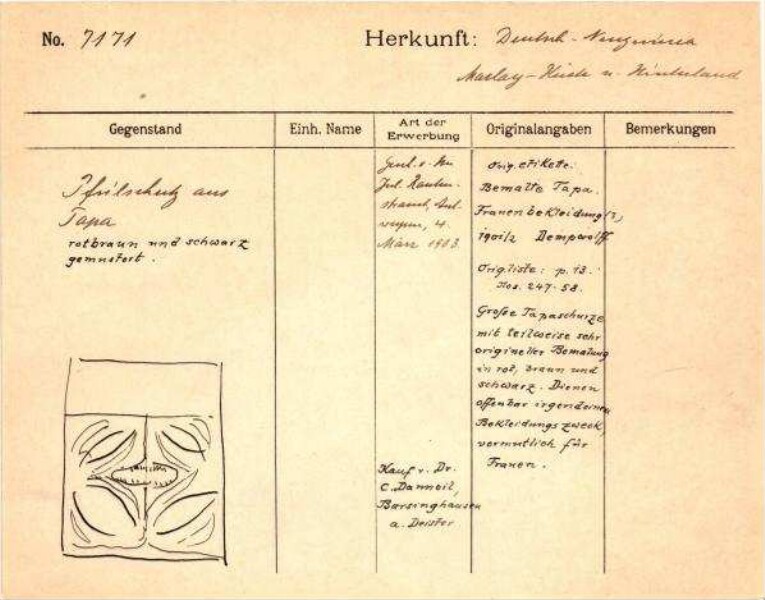 No. 7171
Herkunft: Deutsch-Neuguinea
Maclay-Küste u. Hinterland
Gegenstand
Einh. Name
Art der Erwerbung
Originalangaben
Bemerkungen
aus
Tapa
rotbraun und schwarz
gemustert.
Jul. Rauten-
strauch, Ant-
werpen, 4.
März 1903
Kauf v. Dr.
C. Danneil,
Barsinghausen
a. Deister
Orig. etikete:
Bemalte Tapa.
Frauenbekleidung(?)
1901/2 Dempwolff
Orig.liste: p. 13.
Nos. 247-58.
Große Tapaschurze
mit teilweise sehr
origineller Bemalung
in rot, braun und
schwarz. Dienen
offenbar irgendeinem
Bekleidungszweck,
vermutlich für
Frauen.